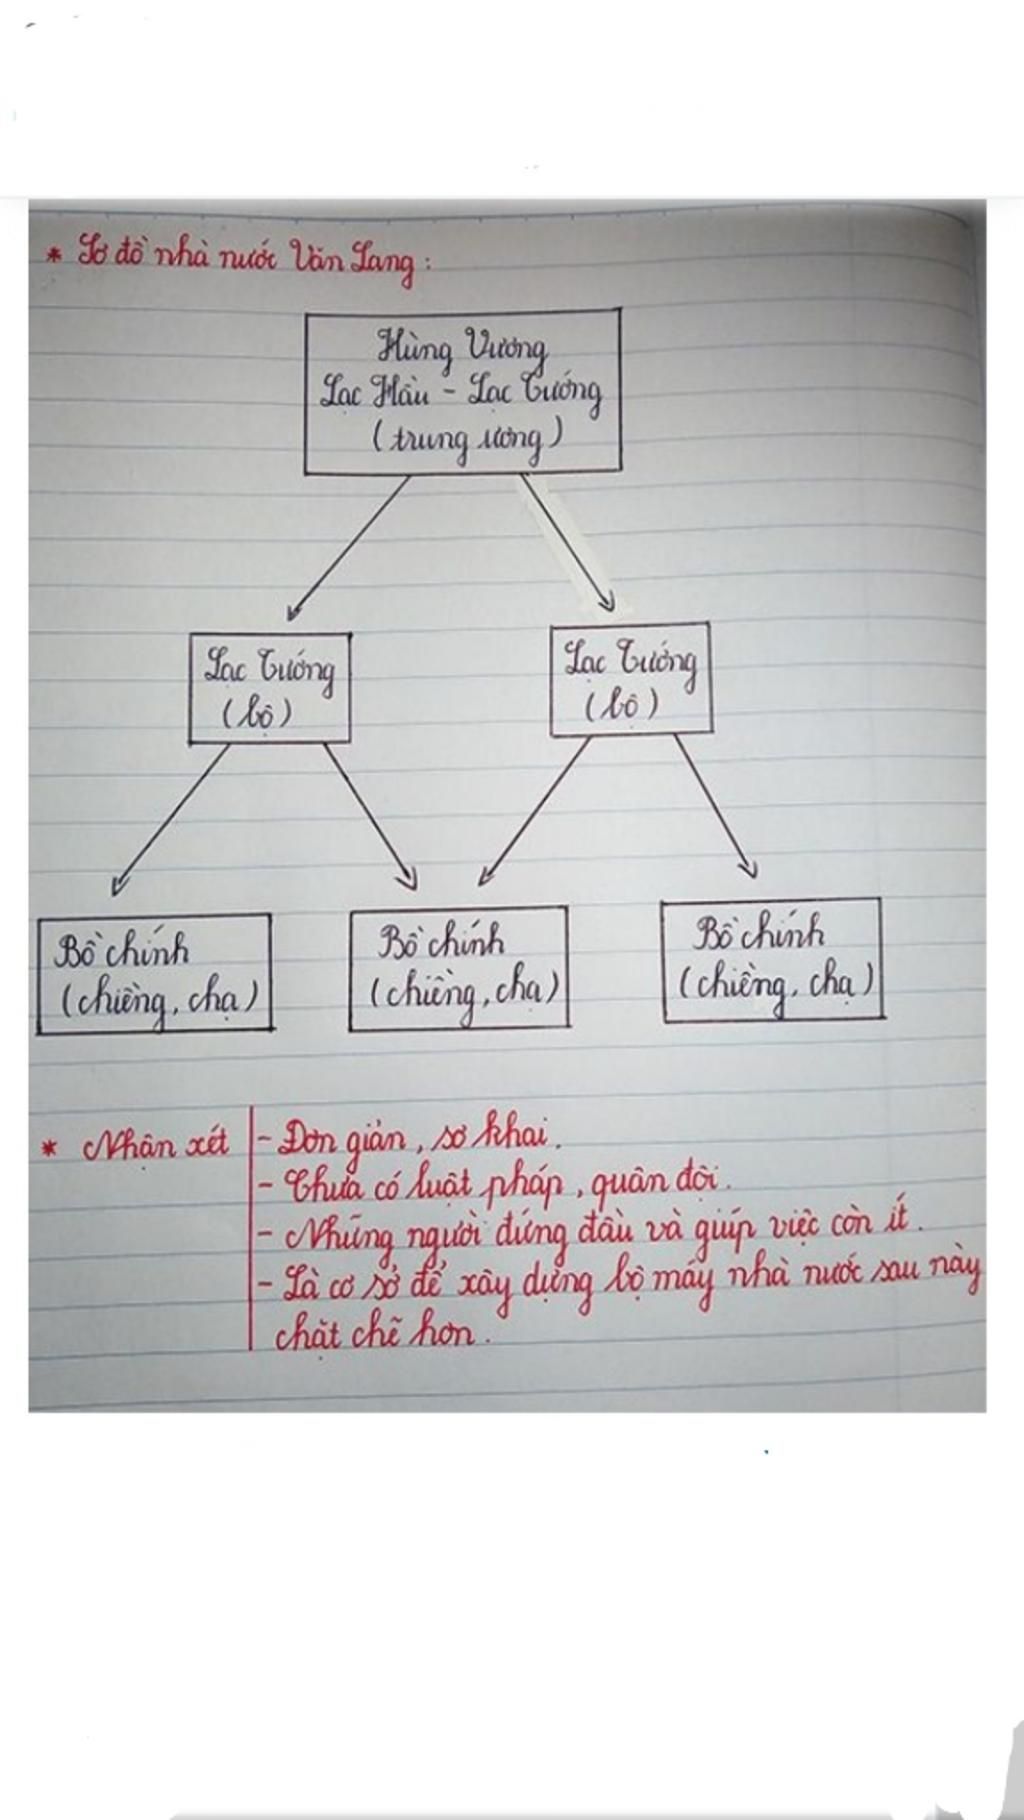 * Sơ đồ nhà nước Văn Lang:
Hùng Vương
Lạc Hầu - Lạc Tướng
(trung ương)
Lạc Tướng
(bộ)
Lạc Tướng
(bộ)
Bồ chính
(chiềng, chạ)
Bồ chính
(chiềng, chạ)
Bồ chính
(chiềng, chạ)
* Nhận xét
- Đơn giản, sơ khai.
- Chưa có luật pháp, quân đội.
- Những người đứng đầu và giúp việc còn ít.
- Là cơ sở để xây dựng bộ máy nhà nước sau này
chặt chẽ hơn.